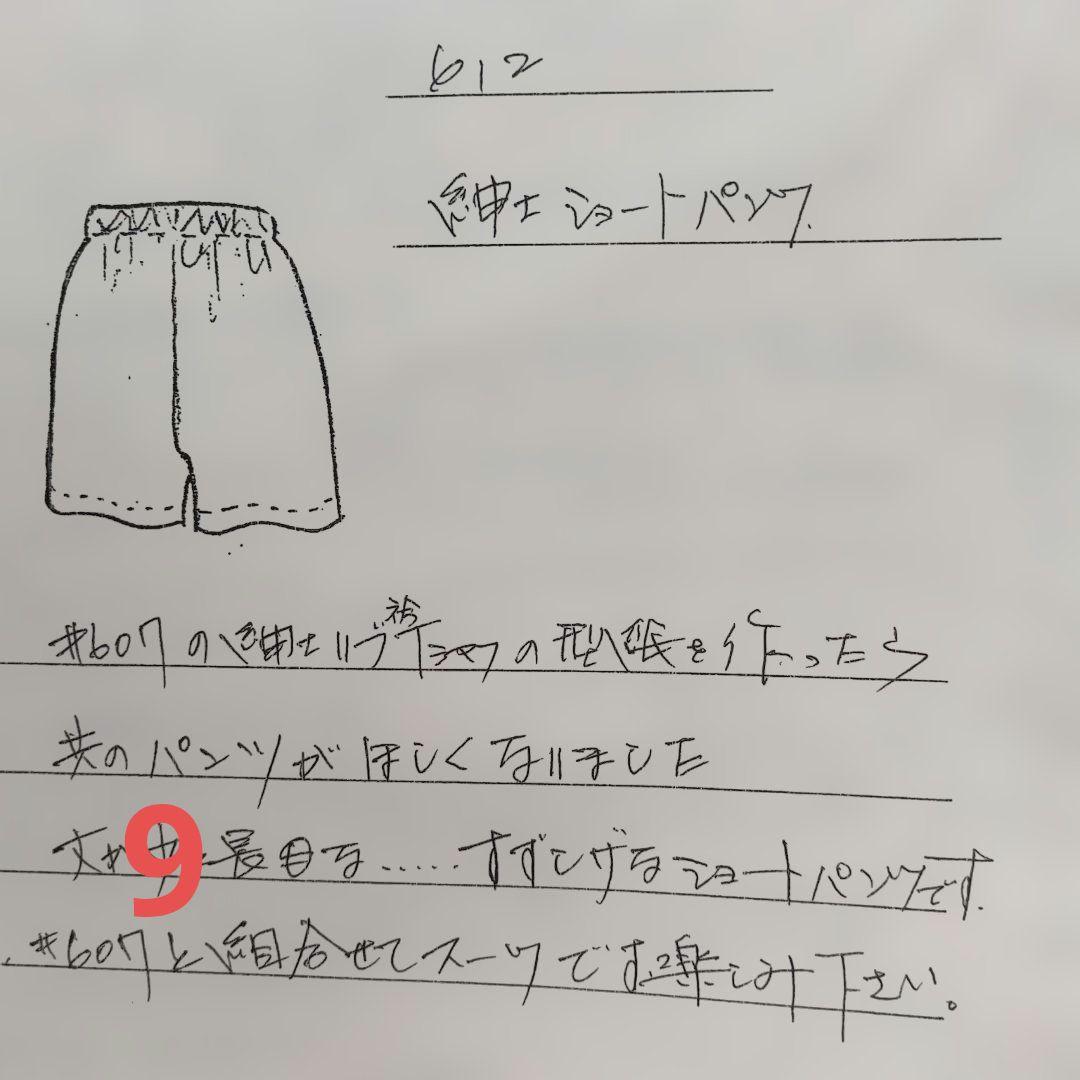 612
紳士ショートパンツ.
#607の紳士リブ衿Tシャツの型紙を作ったら
共のパンツがほしくなりました
丈が
9
長目な.....すずしげなショートパンツです.
#607と組合せてスーツでお楽しみ下さい。